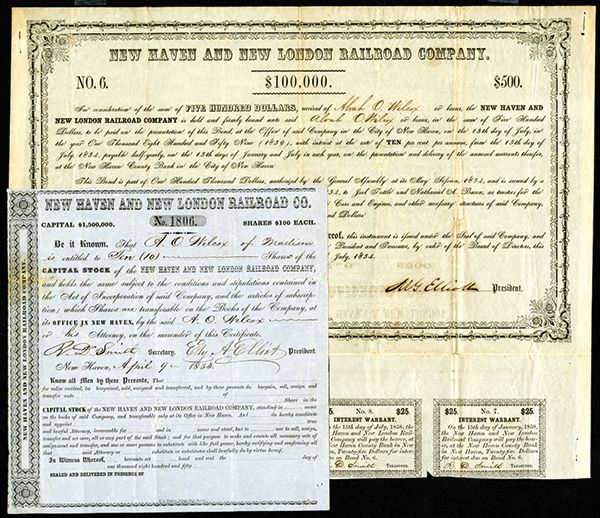 NEW HAVEN AND NEW LONDON RAILROAD COMPANY.
NO. 6.
$100,000.
$500.
In consideration of the sum of FIVE HUNDRED DOLLARS, received of Alvah O. Wilcox or bearer, the NEW HAVEN AND
NEW LONDON RAILROAD COMPANY is held and firmly bound unto said Alvah O. Wilcox or bearer, in the sum of Five Hundred
Dollars, to be paid on the presentation of this Bond, at the Office of said Company in the City of New Haven, on the 15th day of July, in
the year One Thousand Eight Hundred and Fifty Nine (1859), with interest at the rate of TEN per cent per annum, from the 15th day of
July 1854, payable half-yearly, on the 15th day of January and July in each year, on the presentation and delivery of the annexed warrants therefor,
at the New Haven County Bank in the City of New Haven.
This Bond is part of One Hundred Thousand Dollars, authorized by the General Assembly at its May Session, 1854, and is secured by a
54, to Joel Tuttle and Nathaniel A. Bacon, as trustees for the
Cars and Engines, and other auxiliary structure of said Company,
Dollars
hereof, this instrument is issued under the Seal of said Company, and
President and Treasurer, by order of the Board of Directors, this
July, 1854.
Elliott President.
NEW HAVEN AND NEW LONDON RAILROAD CO.
CAPITAL $1,500,000.
No. 1806.
SHARES $100 EACH.
Be it Known, That A. O Wilcox of Madison
is entitled to Ten (10) Shares of the
CAPITAL STOCK of the NEW HAVEN AND NEW LONDON RAILROAD COMPANY,
and holds the same subject to the conditions and stipulations contained in
the Act of Incorporation of said Company, and the articles of subscrip-
tion; which Shares are transferable on the Books of the Company, at
its OFFICE IN NEW HAVEN, by the said A O Wilcox
or his Attorney, on the surrender of this Certificate.
R. D. Smith Secretary. Ely A Elliot President
New Haven, April 9 1855.
Know all Men by these Presents, That
for value received, ha bargained, sold, assigned and transferred, and by these presents do bargain, sell, assign and
transfer unto of
Share in the
CAPITAL STOCK of the NEW HAVEN AND NEW LONDON RAILROAD COMPANY, standing in name
on the books of said Company, and transferable only at its Office in New Haven. And do hereby constitute
and appoint true
and lawful Attorney, irrevocable for and in name and stead, but to use, to sell, assign,
transfer and set over, all or any part of the said Stock; and for that purpose to make and execute all necessary acts of
assignment and transfer, and one or more persons to substitute with like full power, hereby ratifying and confirming all
that said Attorney or substitute or substitutes shall lawfully do by virtue hereof.
In Witness Whereof, hereunto set hand and seal the day of
one thousand eight hundred and fifty
SEALED AND DELIVERED IN PRESENCE OF
NEW HAVEN AND NEW LONDON RAILROAD COMPANY.
No. 8. $25.
INTEREST WARRANT.
the 15th day of July, 1858,
the New Haven and New London Rail-
Company will pay the bearer, at
Haven County Bank in New
Twenty-five Dollars for
interest due on Bond No. 6.
D Smith
TREASURER.
$25. No. 7. $25.
INTEREST WARRANT.
On the 15th day of January, 1858,
the New Haven and New London
Railroad Company will pay the bear-
er, at the New Haven County Bank
in New Haven, Twenty-five Dollars
for interest due on Bond No. 6.
R D Smith
TREASURER.